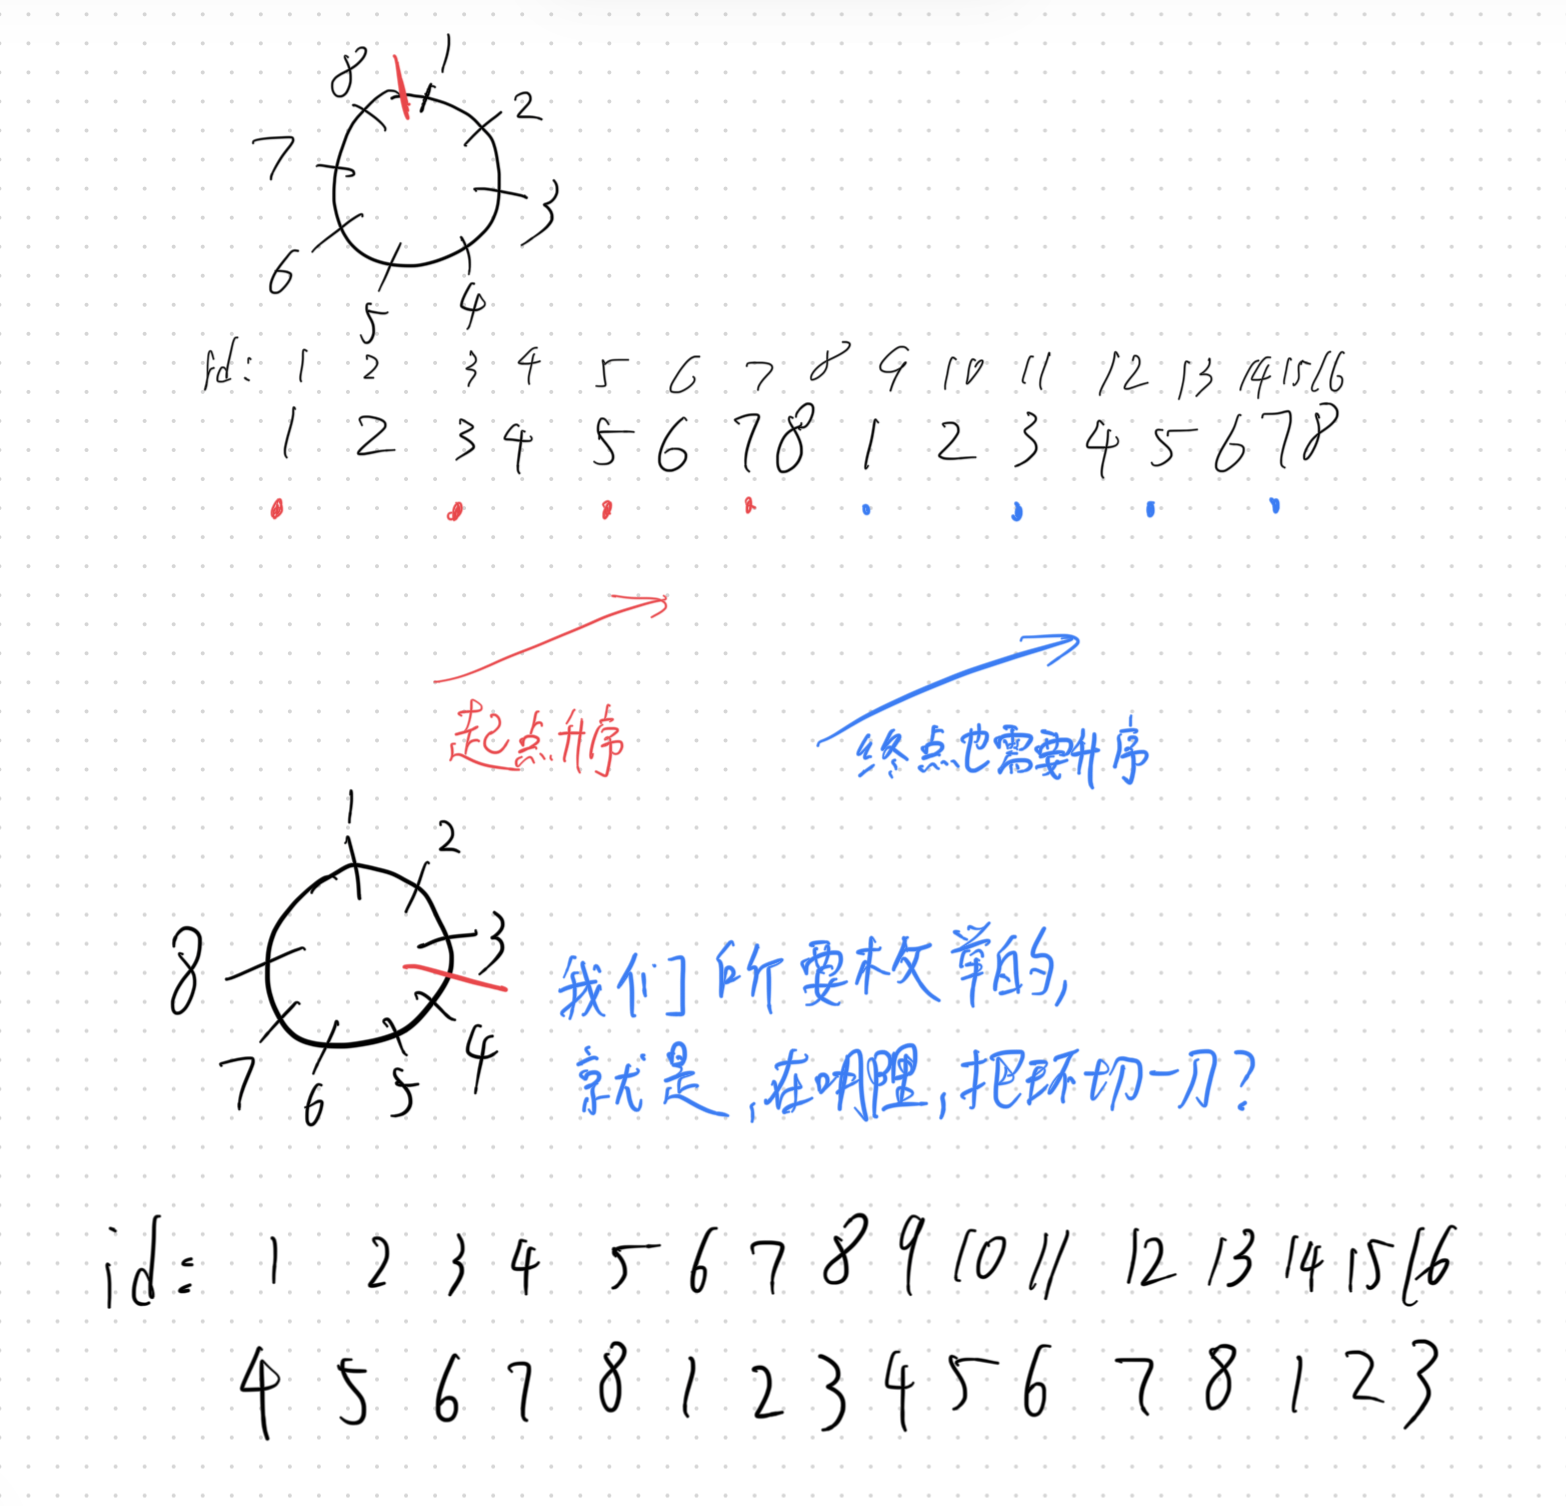 8 1
7 2
6 3
5 4
id: 1 2 3 4 5 6 7 8 9 10 11 12 13 14 15 16
1 2 3 4 5 6 7 8 1 2 3 4 5 6 7 8
起点升序
终点也需要升序
1 2
8 3
7 6 5 4
我们所要枚举的,
就是,在哪里,把环切一刀?
id: 1 2 3 4 5 6 7 8 9 10 11 12 13 14 15 16
4 5 6 7 8 1 2 3 4 5 6 7 8 1 2 3